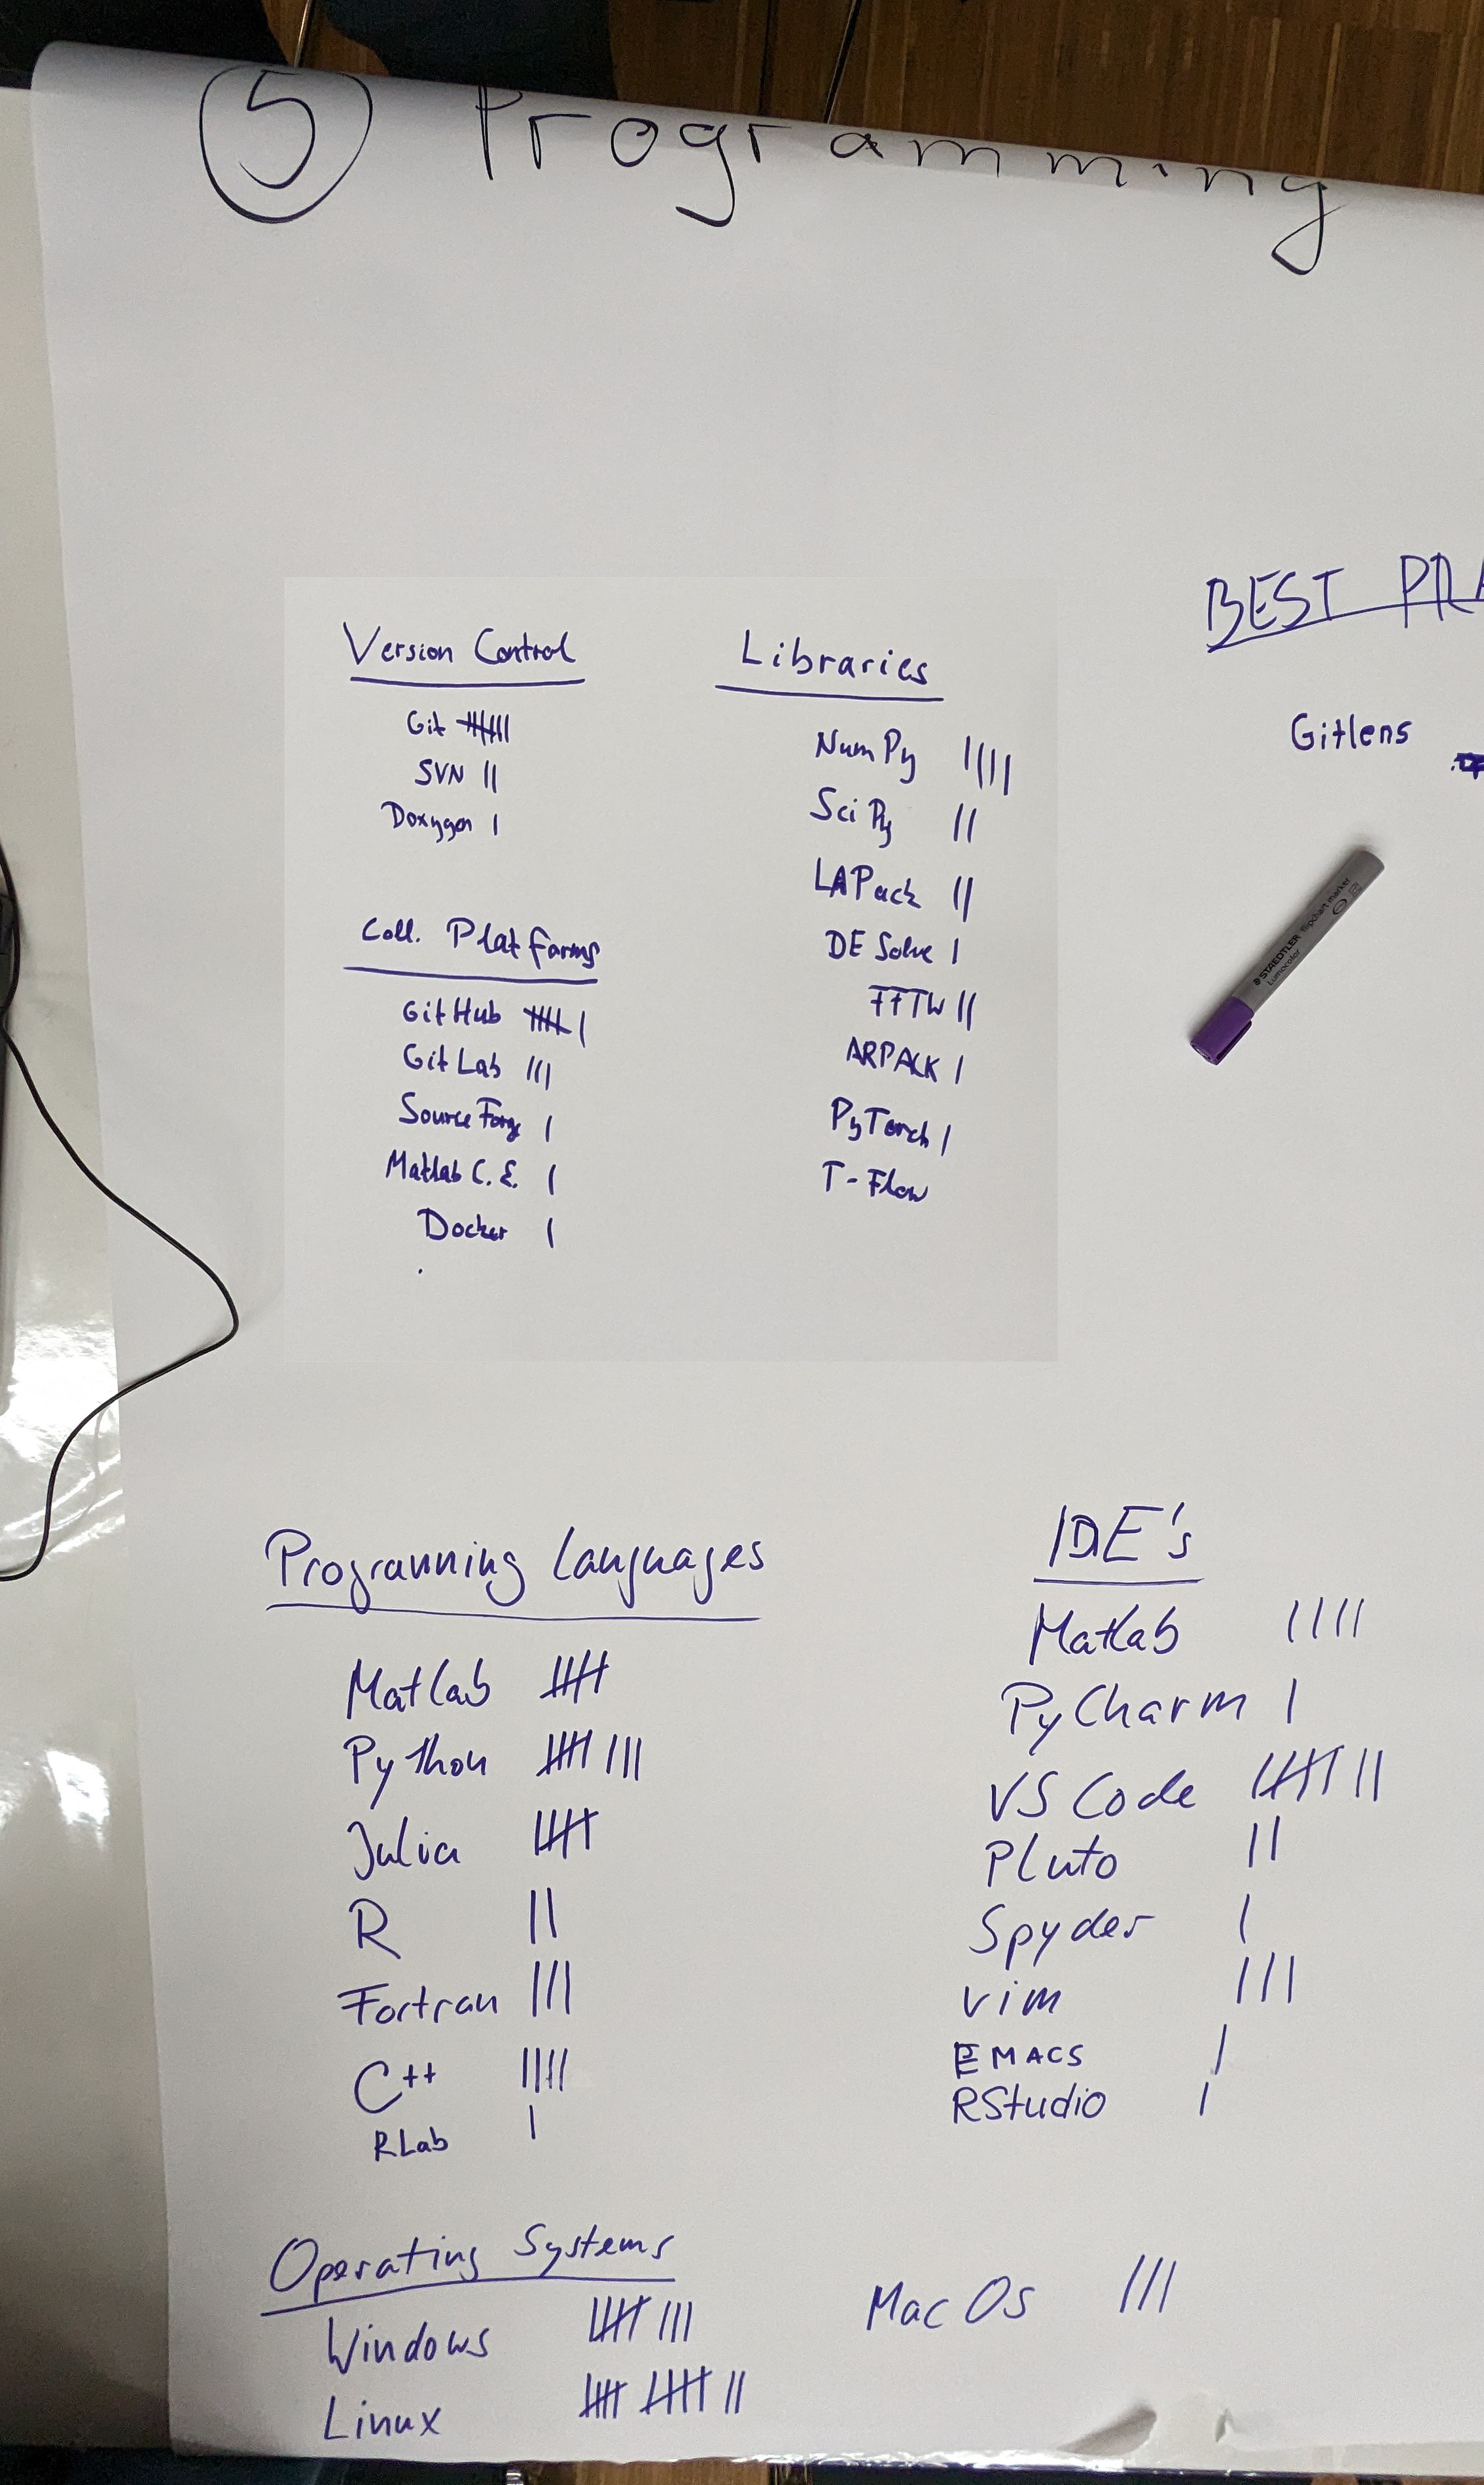 5 Programming
BEST PRA
Gitlens
Version Control
Git 卌 ||
SVN ||
Doxygen |
Coll. Platforms
GitHub 卌 |
GitLab |||
SourceForge |
Matlab C.E. |
Docker |
Libraries
NumPy ||||
SciPy ||
LAPack ||
DESolve |
FFTW ||
ARPACK |
PyTorch |
T-Flow
STAEDTLER flipchart marker
Lumocolor
Programming Languages
Matlab 卌
Python 卌 |||
Julia 卌
R ||
Fortran |||
C++ ||||
RLab |
IDE's
Matlab ||||
PyCharm |
VS Code 卌 ||
Pluto ||
Spyder |
vim |||
EMACS |
RStudio |
Operating Systems
Windows 卌 |||
Linux 卌 卌 ||
Mac Os |||